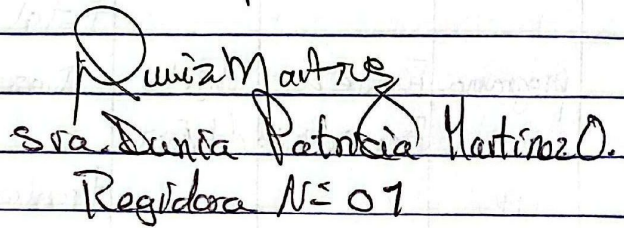 Dunia Martinez
Sra. Dunia Patricia Martinez O.
Regidora Nº 01